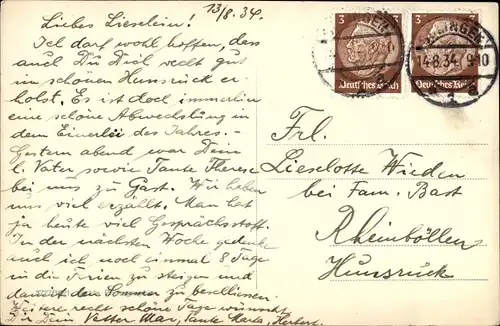 13/8. 34.
Liebes Lieselein!
Ich darf wohl hoffen, dass
auch Du Dich recht gut
im schönen Hunsrück er-
holst. Es ist doch immerhin
eine schöne Abwechslung in
dem Einerlei des Jahres.-
Gestern abend war Dein
l. Vater sowie Tante Therese
bei uns zu Gast. Wir haben
uns viel erzählt. Man hat
ja heute viel Gesprächsstoff.
In der nächsten Woche gedenke
auch ich noch einmal 8 Tage
in die Ferien zu steigen und
damit den Sommer zu beschliessen.
Weitere recht schöne Tage wünscht
Dir Dein Vetter Max, Tante Maria, Herbert.
3 3
Deutsches Reich Deutsches Reich
14.8.34. 9-10
a
Frl.
Lieselotte Wieden
bei Fam. Bast
Rheinböllen
Hunsrück